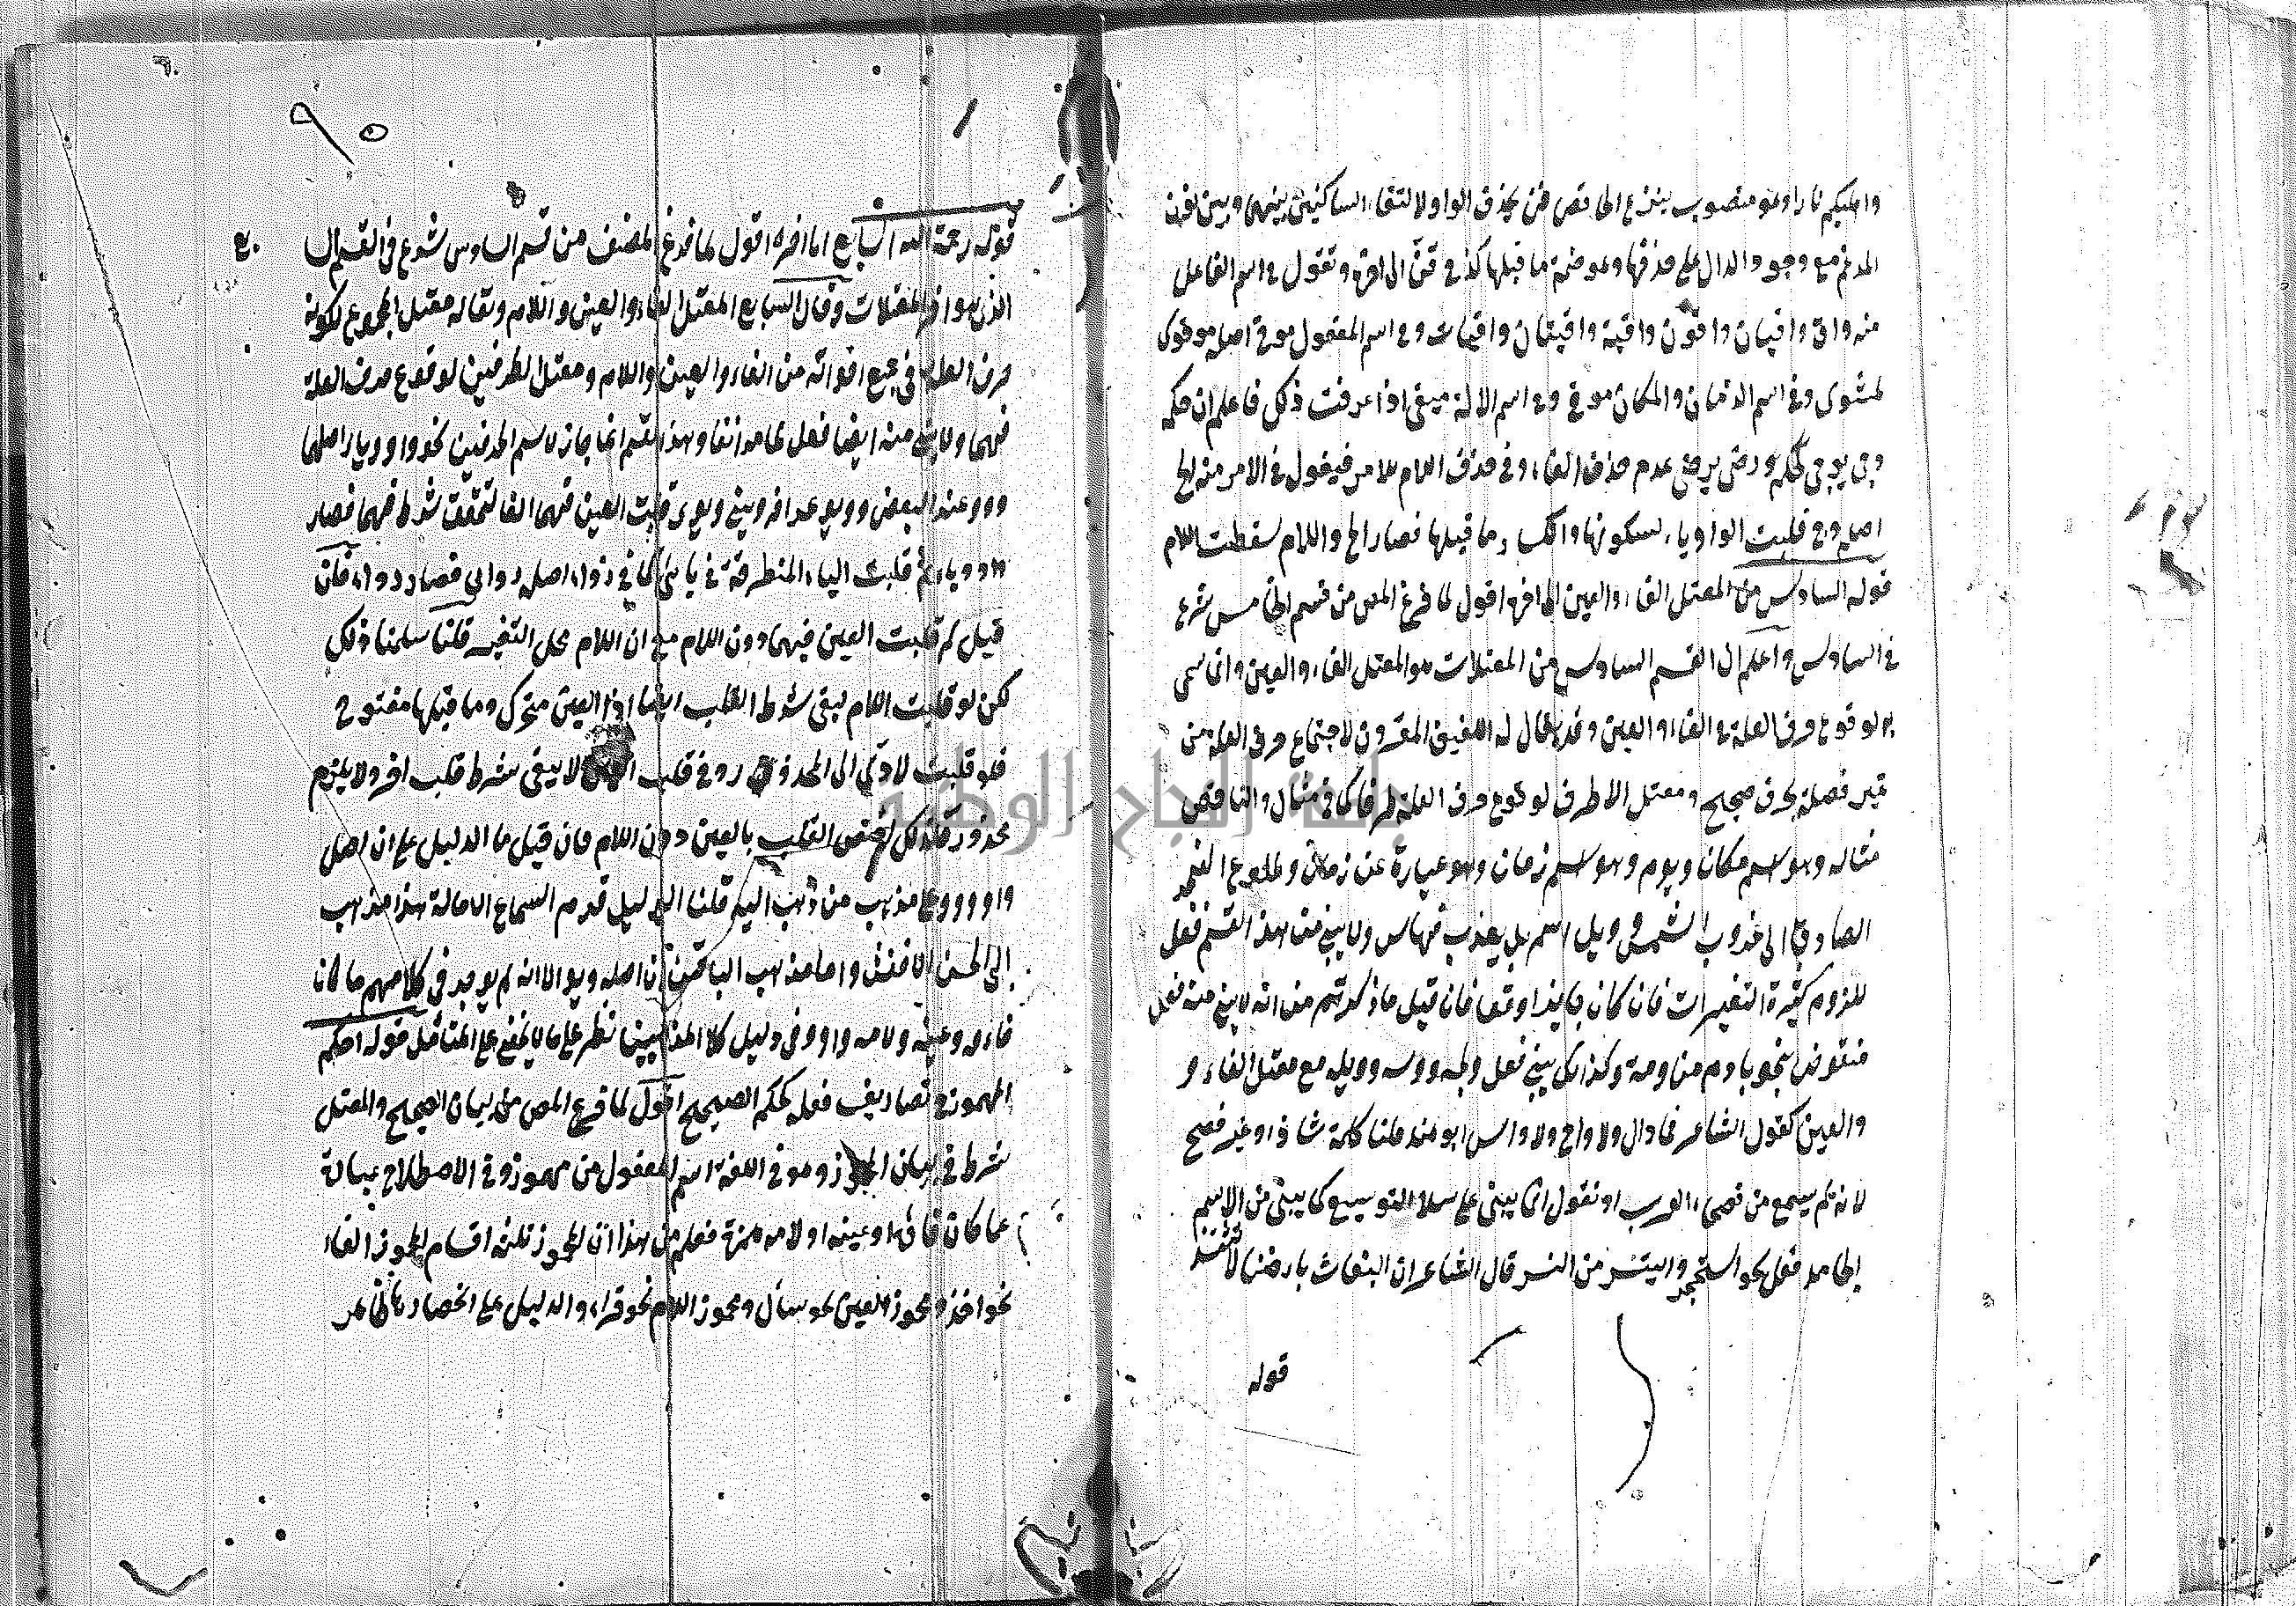 واهليكم نارا وهو منصوب بنزع الخافض فن بحذف الواو لالتقاء الساكنين بينهما وبين نون
المدغم مع وجود الدال على حذفها وهو ضمة ما قبلها كذا في قن الى اخره وتقول في اسم الفاعل
منه واق واقيان واقون واقية واقيتان واقيات وفي اسم المفعول موقى اصله موقوى
لمشوى وفي اسم الزمان والمكان موقى وفي اسم الالة ميقى اذا عرفت ذلك فاعلم ان حكم
وجى يوجى كحكم رضى يرضى عدم حذف الفاء وفي حذف اللام للامر فيقول في الامر منه ايج
اصله اوج قلبت الواو ياء لسكونها وانكسار ما قبلها فصار ايج واللام سقطت للام
قوله السادس من المعتل الفاء والعين الى اخره اقول لما فرغ المص من قسم الخامس شرع
في السادس واعلم ان القسم السادس من المعتلات هو المعتل الفاء والعين وانما سمى
به لوقوع حرف العلة في الفاء والعين وقد يقال له اللفيف المقرون لاجتماع حرفي العلة من
غير فصلة بحرف صحيح ومعتل الاطرف لوقوع حرف العلة طرفا كما في مثال والناقص
مثاله وهو اسم مكان ويوم وهو اسم زمان وهو عبارة عن زمان وطلوع الفجر
الصادق الى غروب الشمس وويل اسم بل يعذب فيها ولا يبنى من هذا القسم فعل
للزوم كثرة التغييرات فان كان جايذا وقعا فان قيل ما ذكرتم من انه لا يبنى منه فعل
منقوض بنحو ياوم مناومة وكذلك يبنى فعل ويله وويسه وويله مع معتل الفاء و
والعين كقول الشاعر فما وال ولا واح ولا واس ابو هند قلنا كلمة شاذ او غير فصح
لانه لم يسمع من فصحاء العرب او نقول انما يبنى على سلا التوسيع كما يبنى من الاسم
الجامد فعل نحو استحجر واستنسر من النسر قال الشاعر ان البغاث بارضنا لا تستنسر
قوله
قوله رحمة الله السابع الى اخره اقول لما فرغ المصنف من قسم السادس شرع في القسم السا
بع
الذي هو اخر المعتلات وقال السابع المعتل الفاء والعين واللام ويقال له معتل المجموع لكونه
حرف العلة في جميع اخواته من الفاء والعين واللام ومعتل الطرفين لوقوع حرف العلة
فيهما ولا يبنى منه ايضا فعل كما مر انفا وهذا القسم انما جاز لاسم الحرفين نحو واو وياء اصلهما
ووو عند البعض وويو عند اخر وييى ويوى قلبت العين فيهما الفا لتحقق شرط فيهما فصار
واو وياء ثم قلبت الياء المتطرفة في ياى كما في دواء اصله دواى فصار دواء فان
قيل لم قلبت العين فيهما دون اللام مع ان اللام محل التغير قلنا سلمنا ذلك
لكن لو قلبت اللام لبقى شرط القلب ايضا اذا العين متحرك وما قبلها مفتوح
فلو قلبت لادى الى المحذور وفي قلب العين لا يبقى شرط قلب اخر ولا يلزم
محذور فلذلك اختص القلب بالعين دون اللام فان قيل ما الدليل على ان اصل
واو ووو على مذهب من ذهب اليه قلنا الدليل قدم السماع الامالة هذا مذهب
ابى الحسن الاخفش واما مذهب الباقين ان اصله ويو الا انه لم يوجد في كلامهم ما كان
فاؤه وعينه ولامه واو وفي دليل كلا المذهبين نظر على ما لا يخفى على المتامل قوله احكم
المهموز في تصاريف فعله كحكم الصحيح اقول لما فرغ المص من بيان الصحيح والمعتل
شرط في بيان المهموز وهو في اللغة اسم المفعول من مهموز وفي الاصطلاح عبارة
عما كان فاؤه او عينه او لامه همزة فعلم من هذا ان المهموز ثلثة اقسام مهموز الفاء
نحو اخذ ومهموز العين نحو سأل ومهموز اللام نحو قراء والدليل على انحصاره